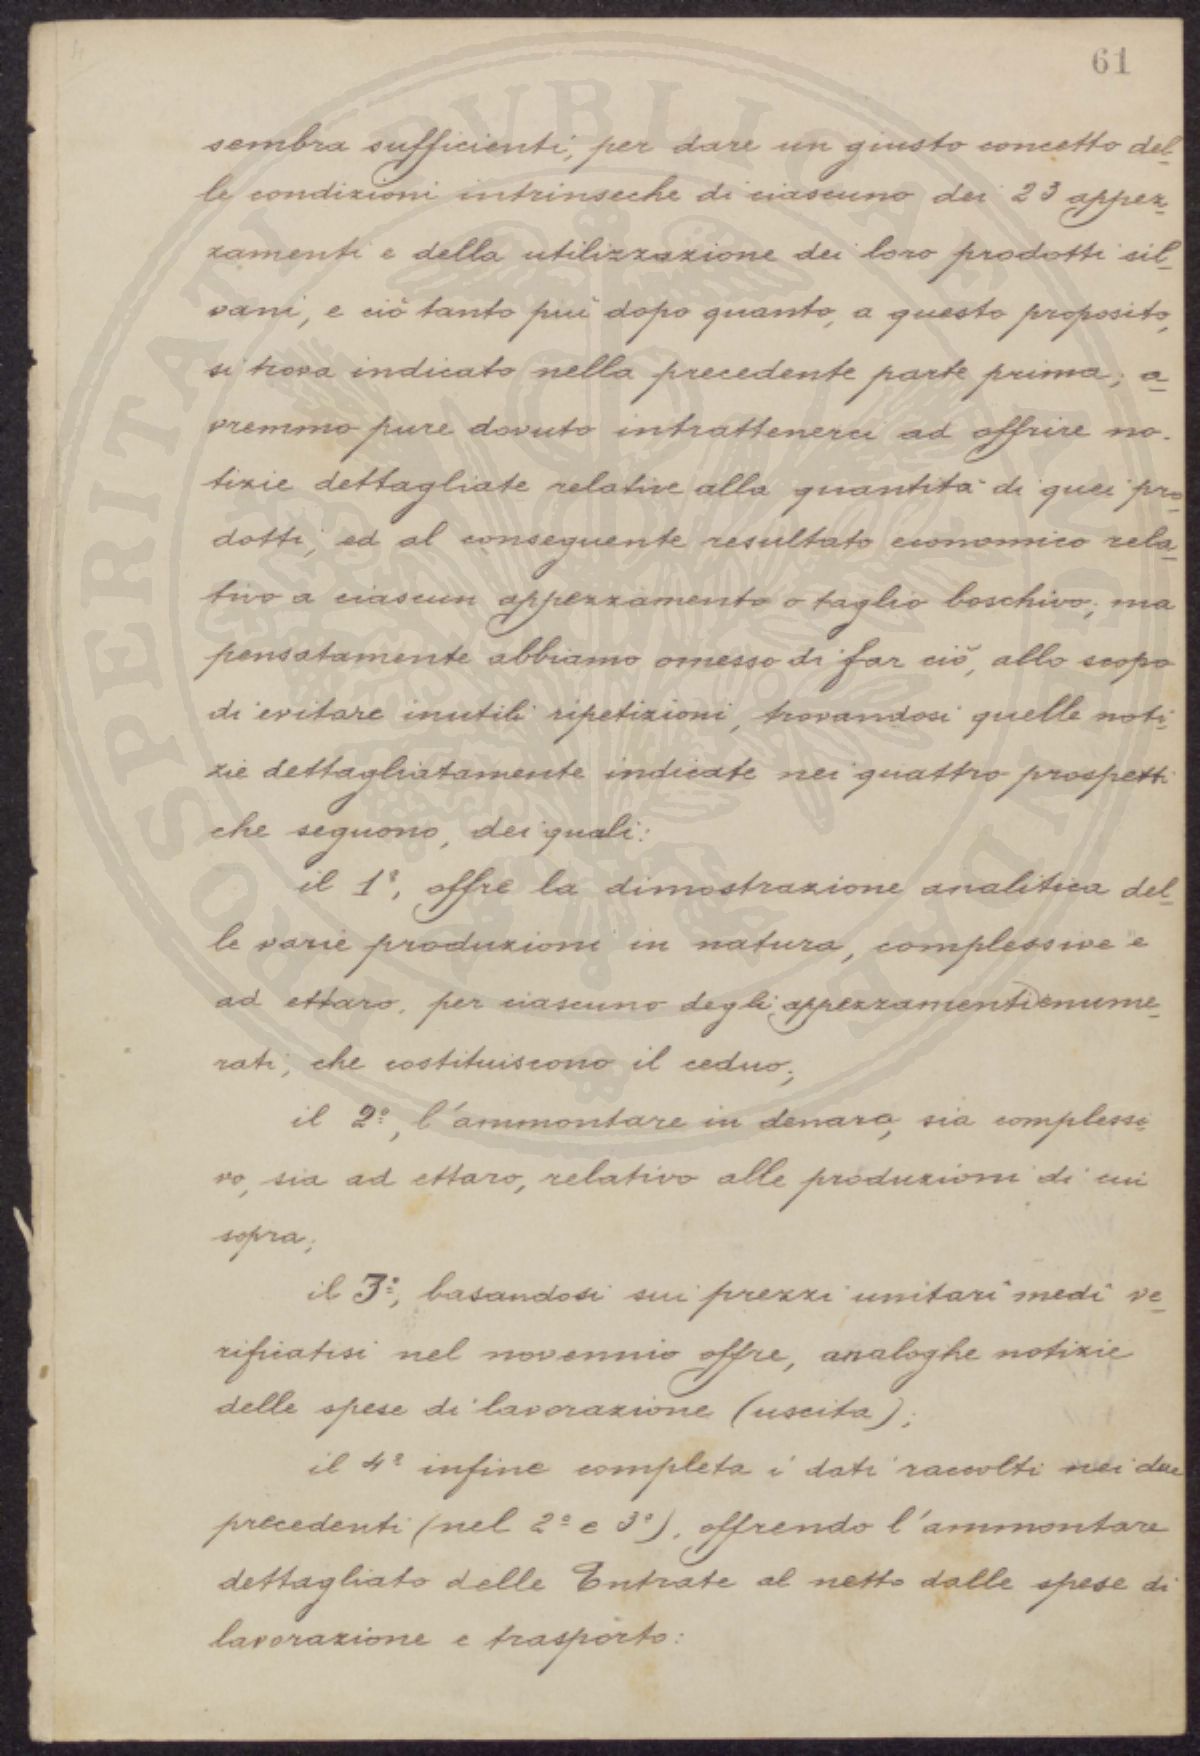 61
sembra sufficienti, per dare un giusto concetto del-
le condizioni intrinseche di ciascuno dei 23 appez-
zamenti e della utilizzazione dei loro prodotti sil-
vani, e ciò tanto più dopo quanto, a questo proposito,
si trova indicato nella precedente parte prima; a-
vremmo pure dovuto intrattenerci ad offrire no-
tizie dettagliate relative alla quantità di quei pro-
dotti, ed al conseguente resultato economico rela-
tivo a ciascun appezzamento o taglio boschivo; ma
pensatamente abbiamo omesso di far ciò, allo scopo
di evitare inutili ripetizioni, trovandosi quelle noti-
zie dettagliatamente indicate nei quattro prospetti
che seguono, dei quali:
il 1º, offre la dimostrazione analitica del-
le varie produzioni in natura, complessive e
ad ettaro, per ciascuno degli appezzamenti enume-
rati, che costituiscono il ceduo;
il 2º, l'ammontare in denaro, sia complessi-
vo, sia ad ettaro, relativo alle produzioni di cui
sopra;
il 3º, basandosi sui prezzi unitari medi ve-
rificatisi nel novennio offre, analoghe notizie
delle spese di lavorazione (uscita);
il 4º infine completa i dati raccolti nei due
precedenti (nel 2º e 3º), offrendo l'ammontare
dettagliato delle Entrate al netto dalle spese di
lavorazione e trasporto:
PROSPERITATI PVBLICAE AVGENDAE